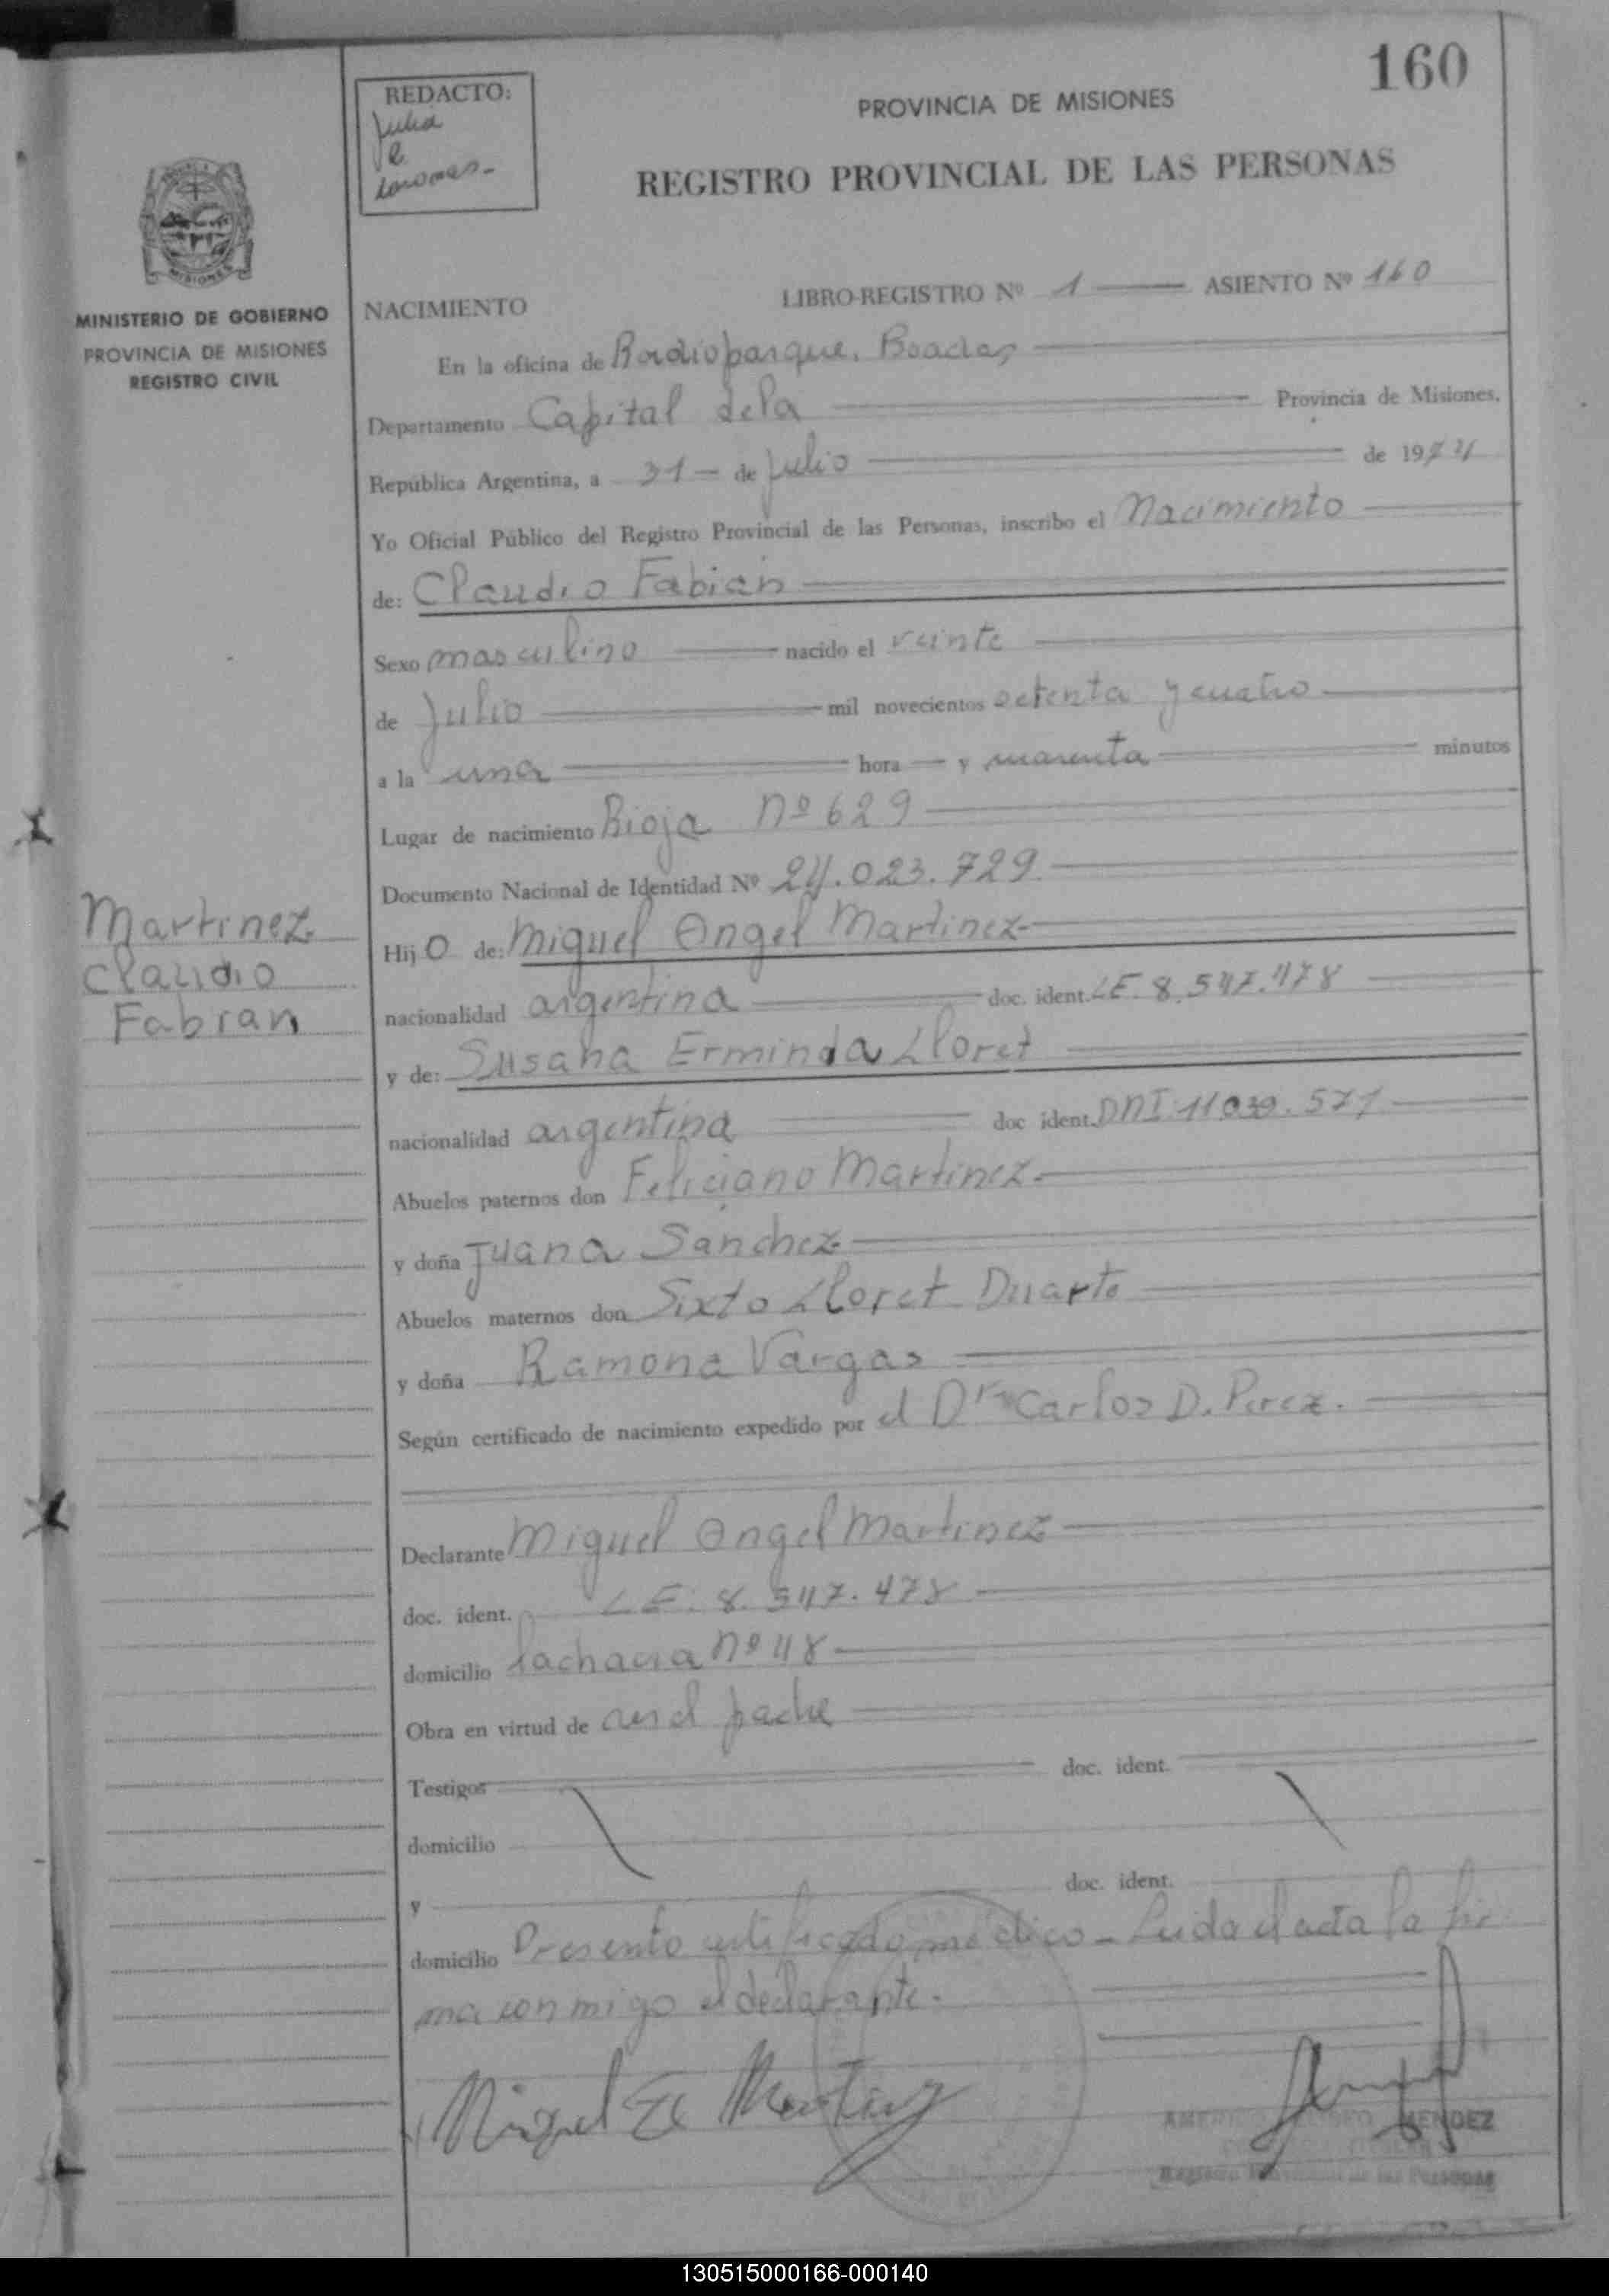 160
REDACTO:
Julia
e
PROVINCIA DE MISIONES
REGISTRO PROVINCIAL DE LAS PERSONAS
MISIONES
MINISTERIO DE GOBIERNO
PROVINCIA DE MISIONES
REGISTRO CIVIL
NACIMIENTO LIBRO-REGISTRO Nº 1 ASIENTO Nº 160
En la oficina de Radioparque, Posadas
Departamento Capital de la Provincia de Misiones,
República Argentina, a 31 - de Julio de 1974
Yo Oficial Público del Registro Provincial de las Personas, inscribo el Nacimiento
de: Claudio Fabian
Sexo masculino nacido el veinte
de Julio mil novecientos setenta y cuatro
a la una hora y cuarenta minutos
Lugar de nacimiento Rioja Nº 629
Documento Nacional de Identidad Nº 24.023.729
Martinez
Claudio
Fabian
Hij o de: Miguel Angel Martinez
nacionalidad argentina doc. ident. LE. 8.547.478
y de: Susana Erminda Lloret
nacionalidad argentina doc ident. DNI 11.039.571
Abuelos paternos don Feliciano Martinez
y doña Juana Sanchez
Abuelos maternos don Sixto Lloret Duarte
y doña Ramona Vargas
Según certificado de nacimiento expedido por el Dr Carlos D. Perez.
Declarante Miguel Angel Martinez
doc. ident. LE. 8.547.478
domicilio Nº 48
Obra en virtud de ser el padre
Testigos doc. ident.
domicilio
y doc. ident.
domicilio Presento certificado médico - Leida el acta la fir
ma con migo el declarante.
Miguel Martinez
AMERICO MENDEZ
Registro Provincial de las Personas
130515000166-000140